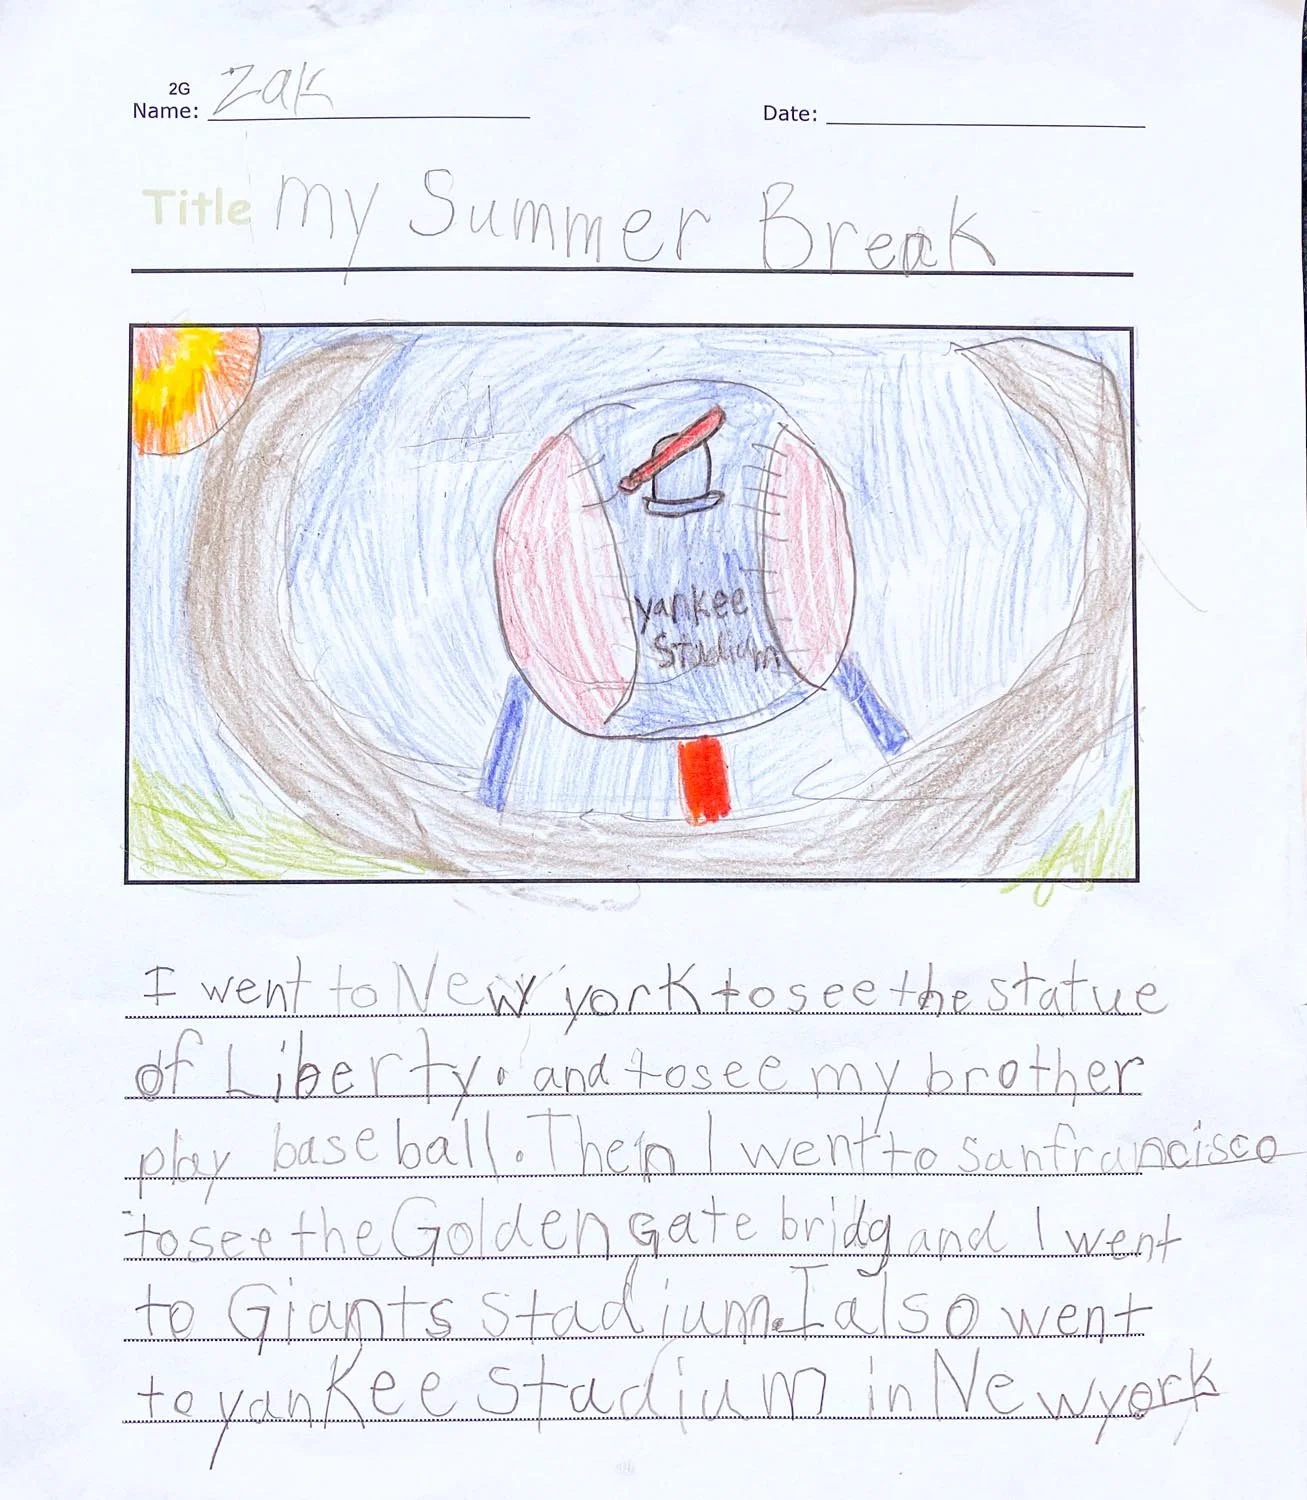 2G
Name: Zak
Date:
Title my Summer Break
yankee
Stadium
I went to New york to see the statue
of Liberty. and to see my brother
play baseball. Then I went to sanfrancisco
to see the Golden Gate bridg and I went
to Giants Stadium. I also went
to yankee Stadium in New york